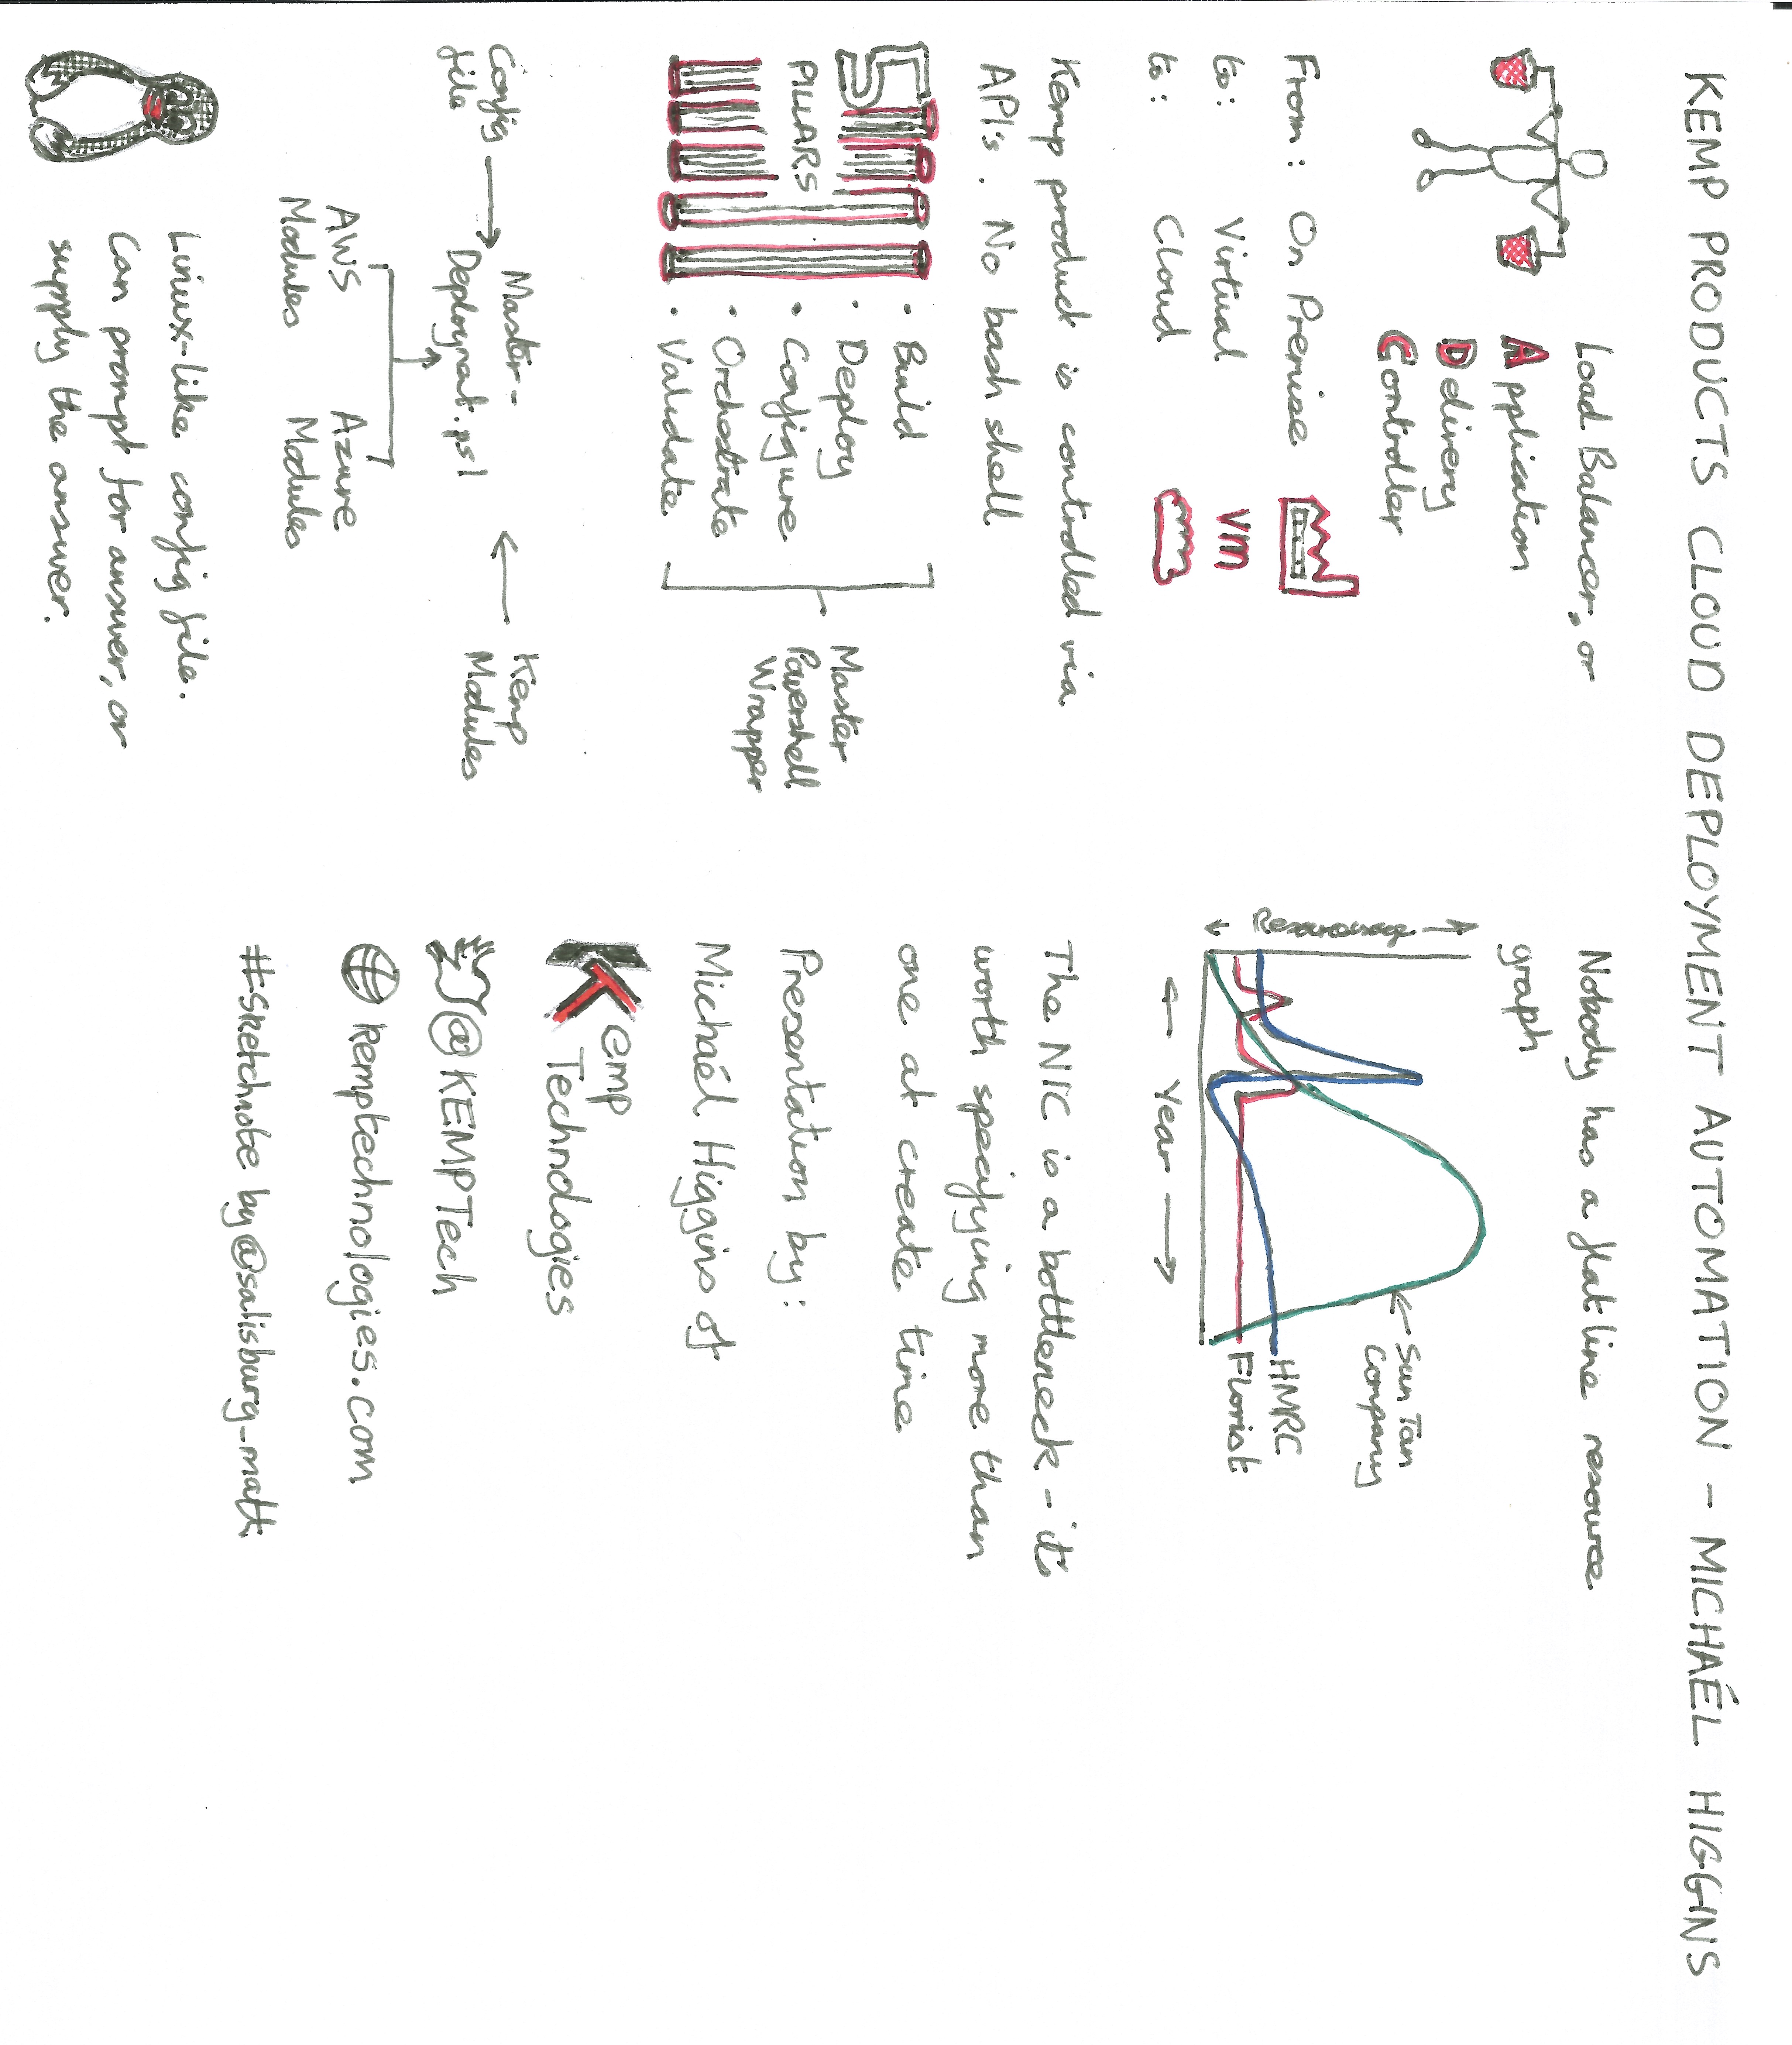 KEMP PRODUCTS CLOUD DEPLOYMENT AUTOMATION - MICHAÉL HIGGINS
Load Balancer, or
Application
Delivery
Controller
From: On Premise
to: Virtual VM
to: Cloud
Kemp product is controlled via
API's. No bash shell
5
PILLARS
• Build
• Deploy
• Configure
• Orchestrate
• Validate
Master
Powershell
Wrapper
Config
file
Master-
Deployment.ps1
Kemp
Modules
AWS
Modules
Azure
Modules
Linux-like config file.
Can prompt for answer, or
supply the answer.
Nobody has a flat line resource
graph
Sun Tan
Company
HMRC
Florist
Year
The NIC is a bottleneck - it's
worth specifying more than
one at create time
Presentation by:
Michaél Higgins of
Kemp
Technologies
@KEMPTech
kemptechnologies.com
#Sketchnote by @salisburg_matt